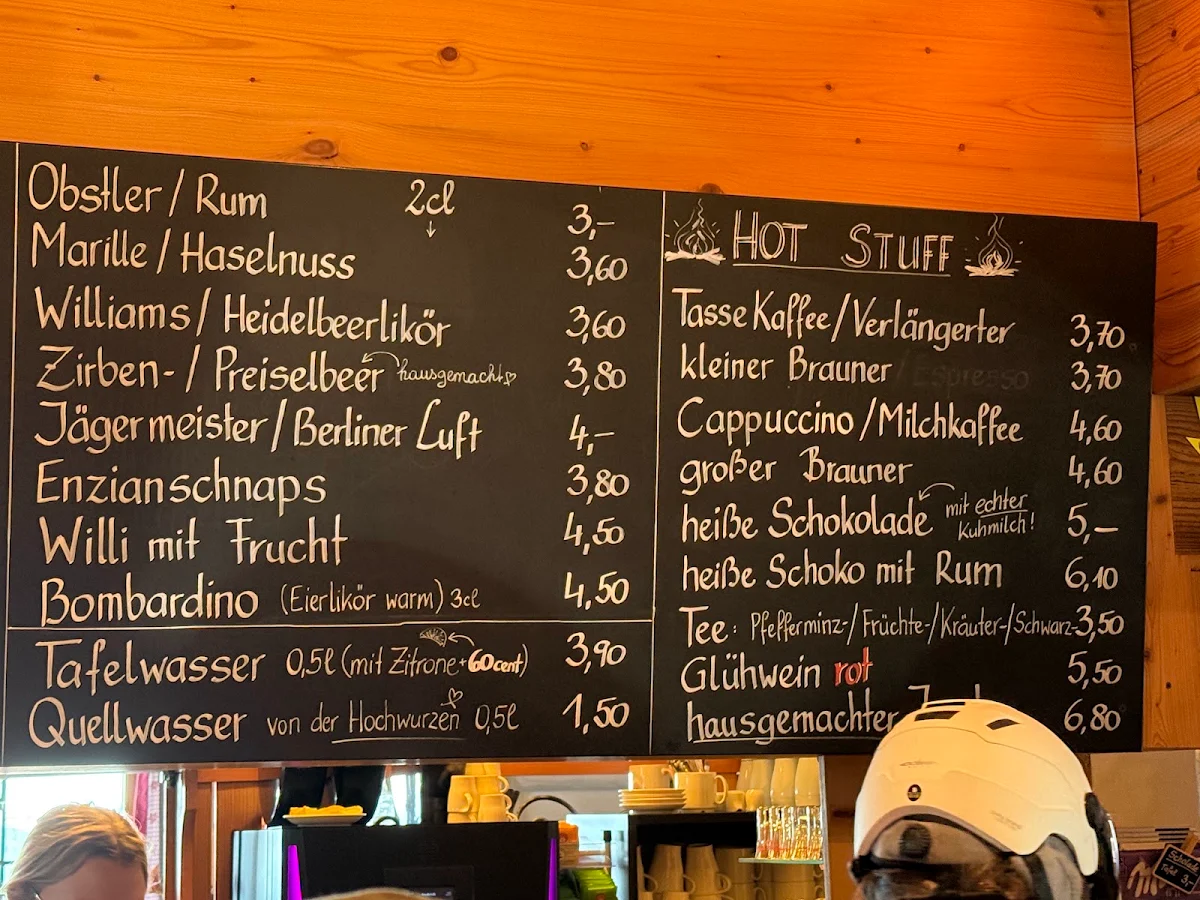 Obstler / Rum 2cl 3,-
Marille / Haselnuss 3,60
Williams / Heidelbeerlikör 3,60
Zirben- / Preiselbeer hausgemacht 3,80
Jägermeister / Berliner Luft 4,-
Enzianschnaps 3,80
Willi mit Frucht 4,50
Bombardino (Eierlikör warm) 3cl 4,50
Tafelwasser 0,5l (mit Zitrone + 60cent) 3,90
Quellwasser von der Hochwurzen 0,5l 1,50
HOT STUFF
Tasse Kaffee / Verlängerter 3,70
kleiner Brauner / Espresso 3,70
Cappuccino / Milchkaffee 4,60
großer Brauner 4,60
heiße Schokolade mit echter Kuhmilch! 5,-
heiße Schoko mit Rum 6,10
Tee: Pfefferminz-/Früchte-/Kräuter-/Schwarz- 3,50
Glühwein rot 5,50
hausgemachter 6,80